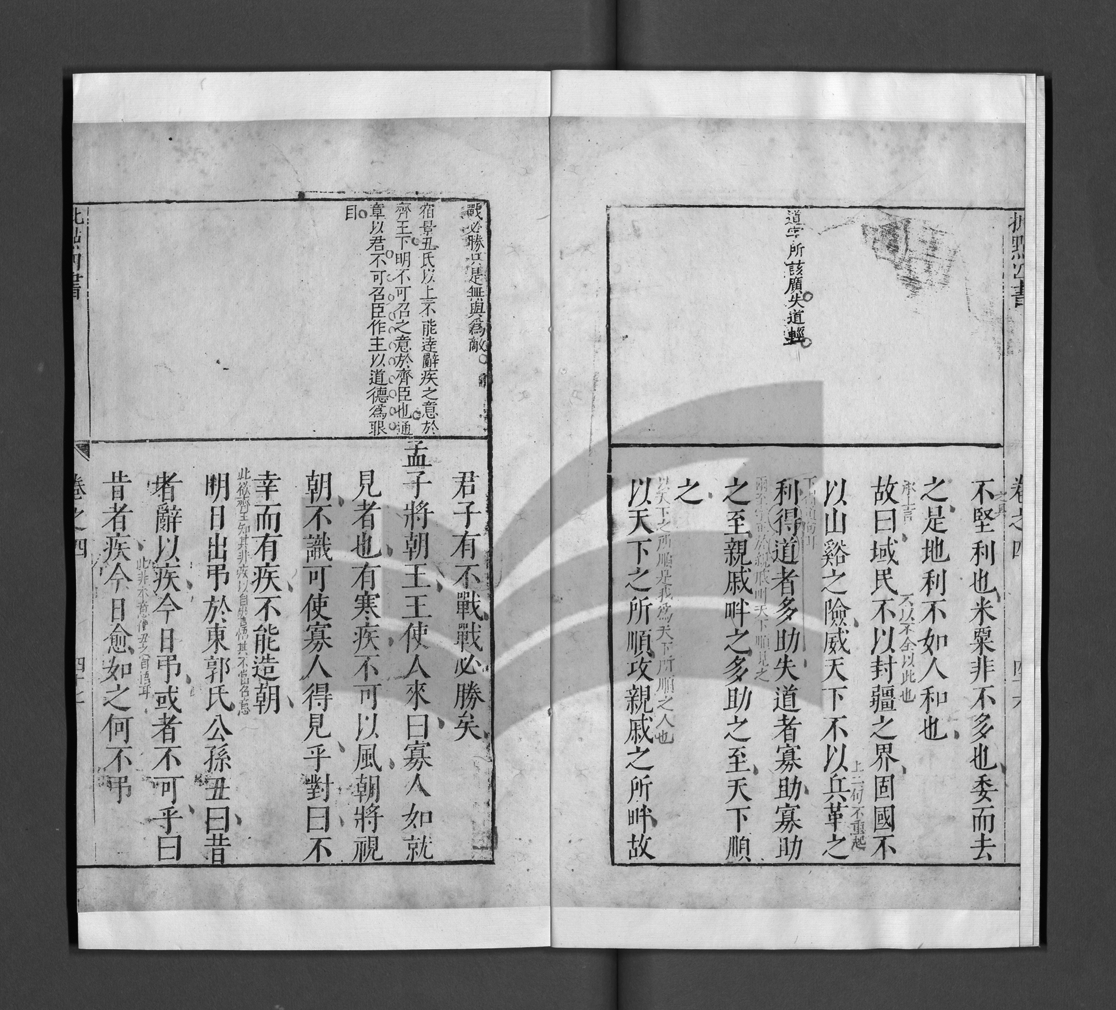 道字所該廣失道輕
不堅利也米粟非不多也委而去
之是地利不如人和也
故曰域民不以封疆之界固國不
上二句不重起
以山谿之險威天下不以兵革之
利得道者多助失道者寡助寡助
之至親戚畔之多助之至天下順
之
以天下之所順是我為天下所順之人也
以天下之所順攻親戚之所畔故
戰必勝只是無與為敵
宿景丑氏以上不能達辭疾之意於
齊王下明不可召之意於齊臣也通
章以君不可召臣作主以道德為眼
目
君子有不戰戰必勝矣
孟子將朝王王使人來曰寡人如就
見者也有寒疾不可以風朝將視
朝不識可使寡人得見乎對曰不
幸而有疾不能造朝
明日出弔於東郭氏公孫丑曰昔
者辭以疾今日弔或者不可乎曰
昔者疾今日愈如之何不弔
卷之四